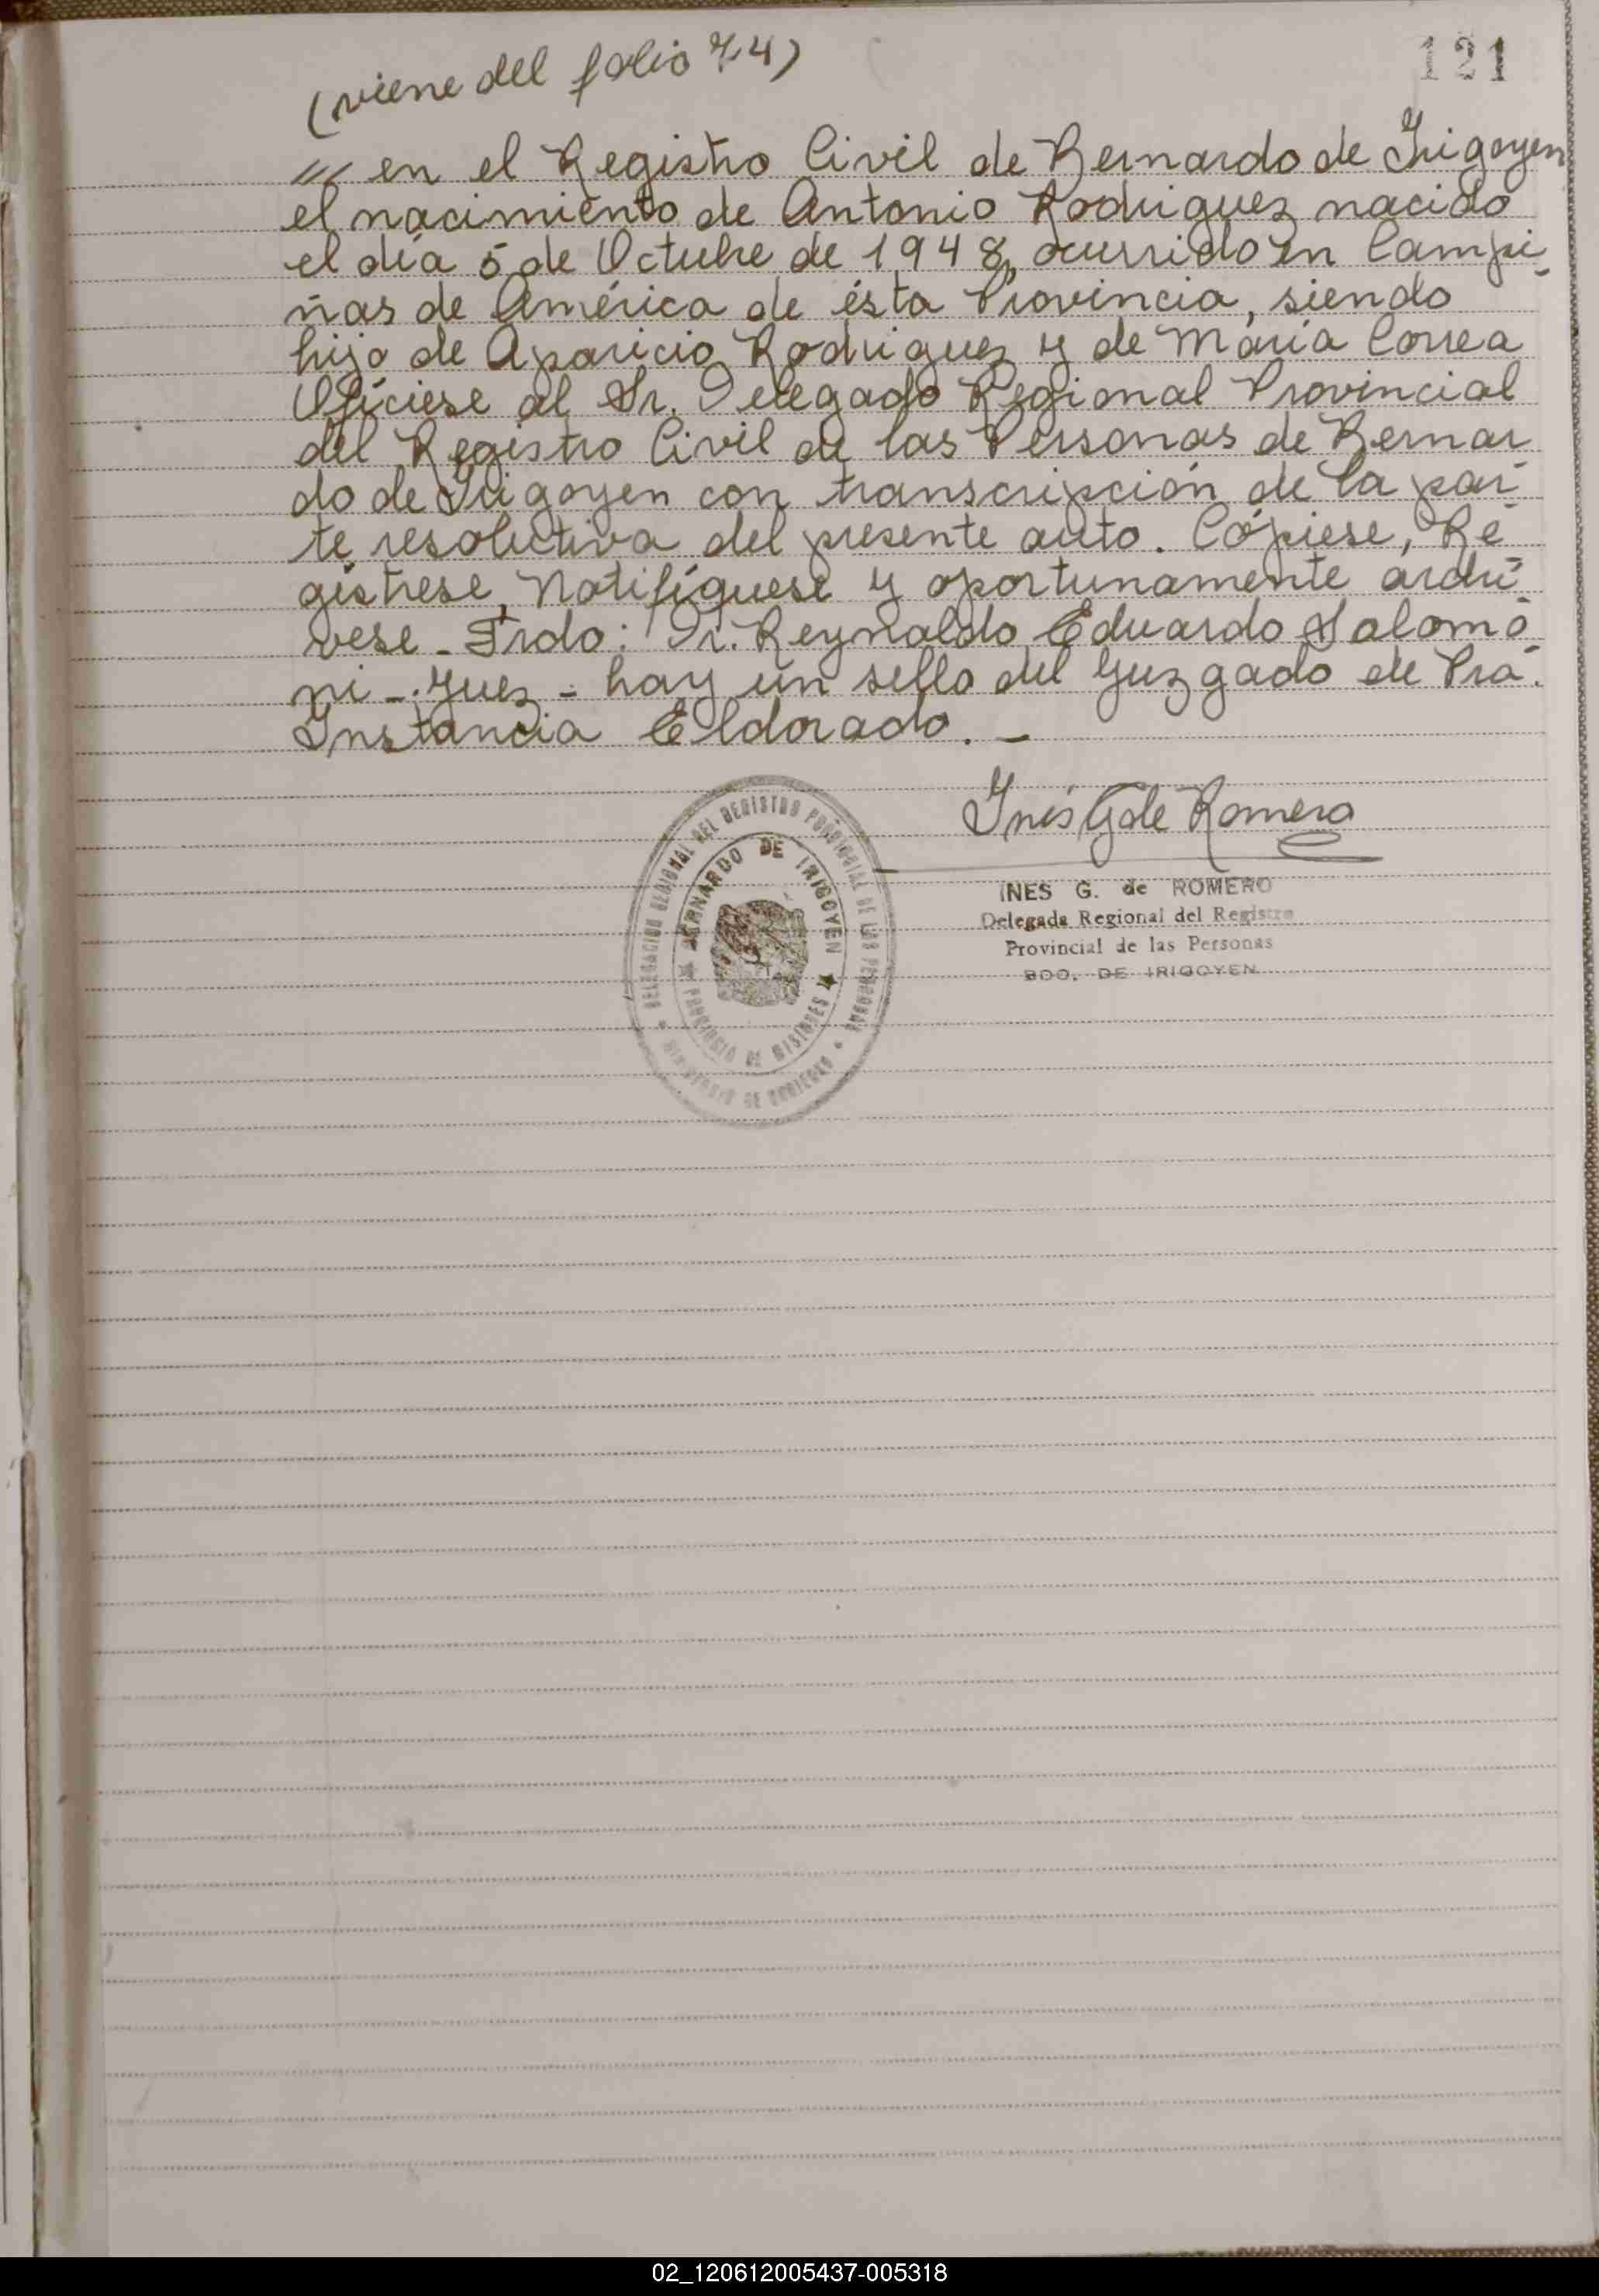 (viene del folio 74)
121
/// en el Registro Civil de Bernardo de Irigoyen
el nacimiento de Antonio Rodriguez nacido
el día 5 de Octubre de 1948, ocurrido en Campi-
ñas de América de ésta Provincia, siendo
hijo de Aparicio Rodriguez y de María Correa
Ofíciese al Sr. Delegado Regional Provincial
del Registro Civil de las Personas de Bernar-
do de Irigoyen con transcripción de la par-
te resolutiva del presente auto. Cópiese, Re-
gístrese, Notifíquese y oportunamente archí-
vese - Frdo: Dr. Reynaldo Eduardo Salomo-
ni - Juez - hay un sello del Juzgado de Pra.
Instancia Eldorado. -
Inés G de Romero
DELEGACION REGIONAL DEL REGISTRO PROVINCIAL DE LAS PERSONAS
BERNARDO DE IRIGOYEN
PROVINCIA DE MISIONES
MINISTERIO DE GOBIERNO
INES G. de ROMERO
Delegada Regional del Registro
Provincial de las Personas
BDO. DE IRIGOYEN
02_120612005437-005318